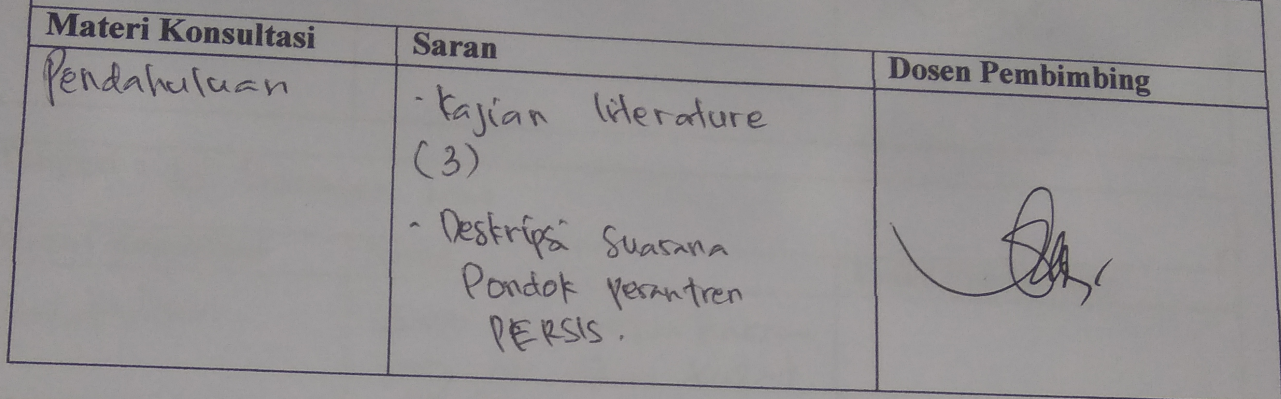 Materi Konsultasi
Saran
Dosen Pembimbing
Pendahuluan
- Kajian literature
(3)
- Deskripsi Suasana
Pondok pesantren
PERSIS.